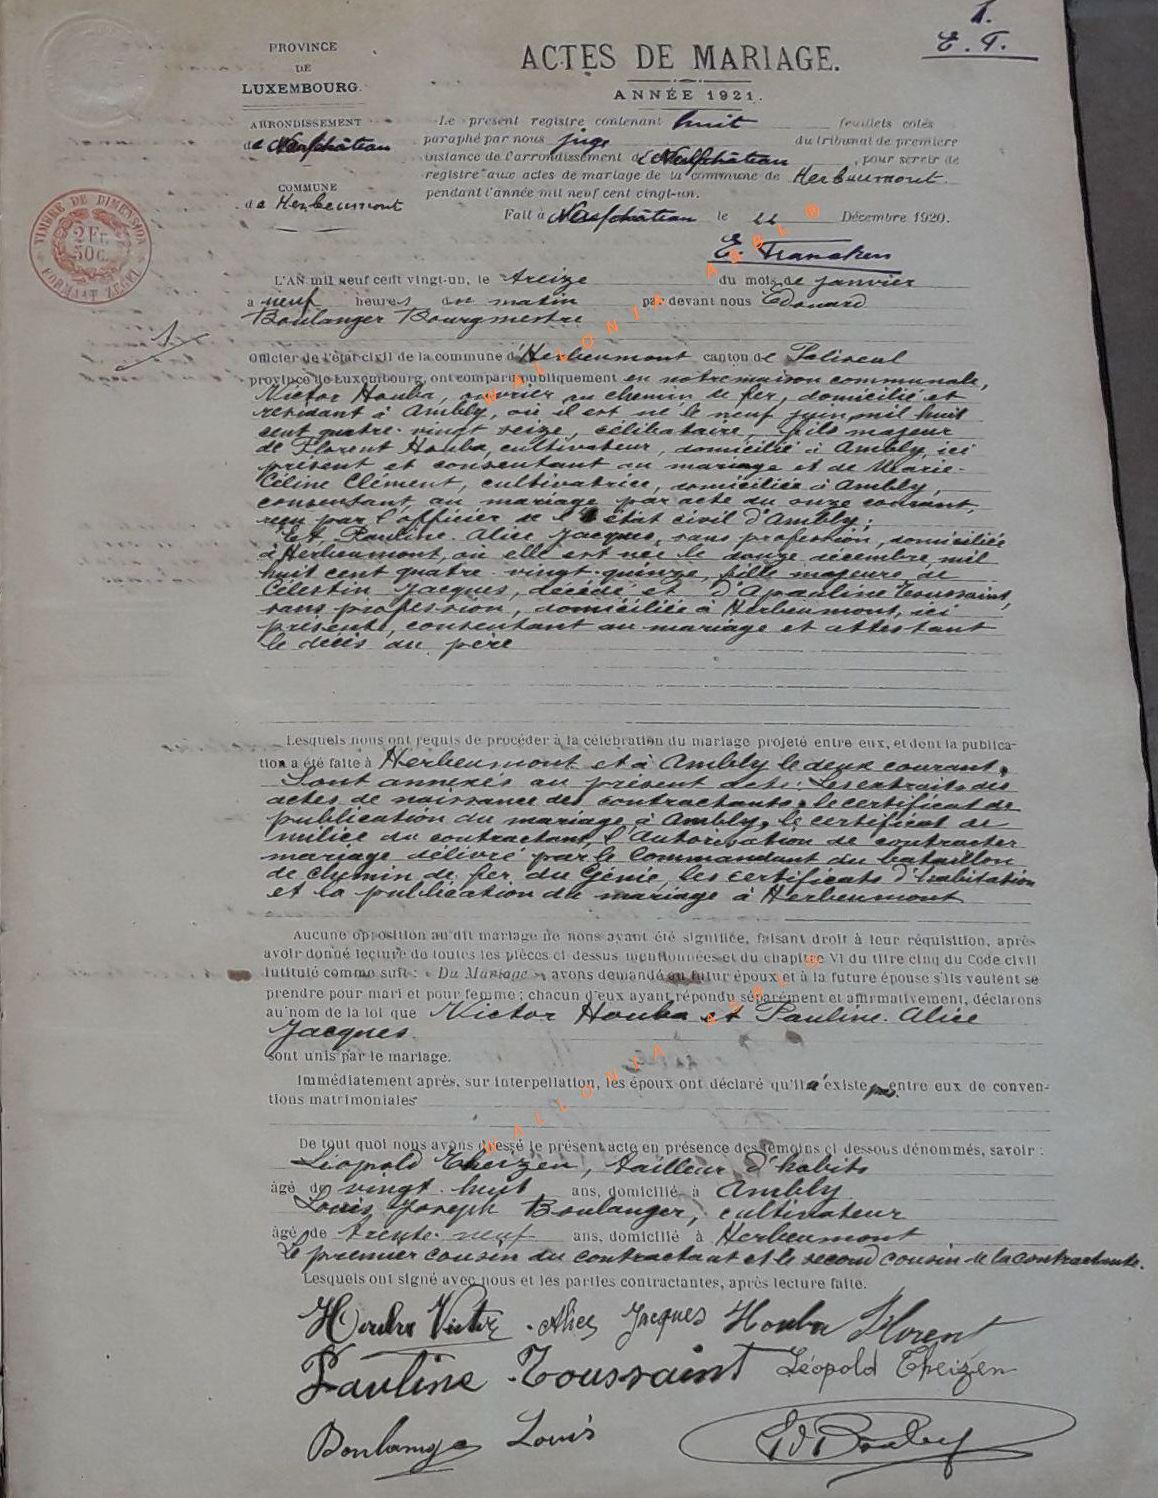 1.
E. F.
PROVINCE
DE
LUXEMBOURG.
ACTES DE MARIAGE.
ANNÉE 1921.
ARRONDISSEMENT
de Neufchâteau
COMMUNE
de Herbeumont
TIMBRE DE DIMENSION
2 Fr.
50 c.
FORMAT
Le présent registre contenant huit feuillets cotés
paraphé par nous juge du tribunal de première
instance de l'arrondissement de Neufchâteau, pour servir de
registre aux actes de mariage de la commune de Herbeumont
pendant l'année mil neuf cent vingt-un.
Fait à Neufchâteau le 22 Décembre 1920.
E. Francken
L'AN mil neuf cent vingt-un, le treize du mois de janvier
à neuf heures du matin par devant nous Edouard
Boulanger Bourgmestre
1.
Officier de l'état civil de la commune d'Herbeumont canton de Paliseul
province de Luxembourg, ont comparu publiquement en notre maison communale,
Victor Houba, ouvrier au chemin de fer, domicilié et
résidant à Ambly, où il est né le neuf juin mil huit
cent quatre-vingt seize, célibataire, fils majeur
de Florent Houba, cultivateur, domicilié à Ambly, ici
présent et consentant au mariage et de Marie-
Céline Clément, cultivatrice, domiciliée à Ambly,
consentant au mariage par acte du onze courant,
reçu par l'officier de l'état civil d'Ambly;
Et Pauline-Alice Jacques, sans profession, domiciliée
à Herbeumont, où elle est née le douze décembre mil
huit cent quatre-vingt-quinze, fille majeure de
Célestin Jacques, décédé et d'Apauline Toussaint,
sans profession, domiciliée à Herbeumont, ici
présente, consentant au mariage et attestant
le décès du père
Lesquels nous ont requis de procéder à la célébration du mariage projeté entre eux, et dont la publica-
tion a été faite à Herbeumont et à Ambly le deux courant.
Sont annexés au présent acte: Les extraits des
actes de naissance des contractants, le certificat de
publication du mariage à Ambly, le certificat de
milice du contractant, l'autorisation de contracter
mariage délivré par le Commandant du bataillon
de chemin de fer du Génie, les certificats d'habitation
et la publication du mariage à Herbeumont
Aucune opposition au dit mariage ne nous ayant été signifiée, faisant droit à leur réquisition, après
avoir donné lecture de toutes les pièces ci dessus mentionnées et du chapitre VI du titre cinq du Code civil
intitulé comme suit: « Du Mariage », avons demandé au futur époux et à la future épouse s'ils veulent se
prendre pour mari et pour femme; chacun d'eux ayant répondu séparément et affirmativement, déclarons
au nom de la loi que Victor Houba et Pauline-Alice
Jacques
sont unis par le mariage.
Immédiatement après, sur interpellation, les époux ont déclaré qu'il n'existe pas entre eux de conven-
tions matrimoniales
De tout quoi nous avons dressé le présent acte en présence des témoins ci dessous dénommés, savoir:
Léopold Theizen, tailleur d'habits
âgé de vingt-huit ans, domicilié à Ambly
Louis Joseph Boulanger, cultivateur
âgé de trente-neuf ans, domicilié à Herbeumont
Le premier cousin du contractant et le second cousin de la contractante.
Lesquels ont signé avec nous et les parties contractantes, après lecture faite.
Houba Victor Alice Jacques Houba Florent
Pauline Toussaint Léopold Theizen
Boulanger Louis
WALLONIA ASBL ©
WALLONIA ASBL ©